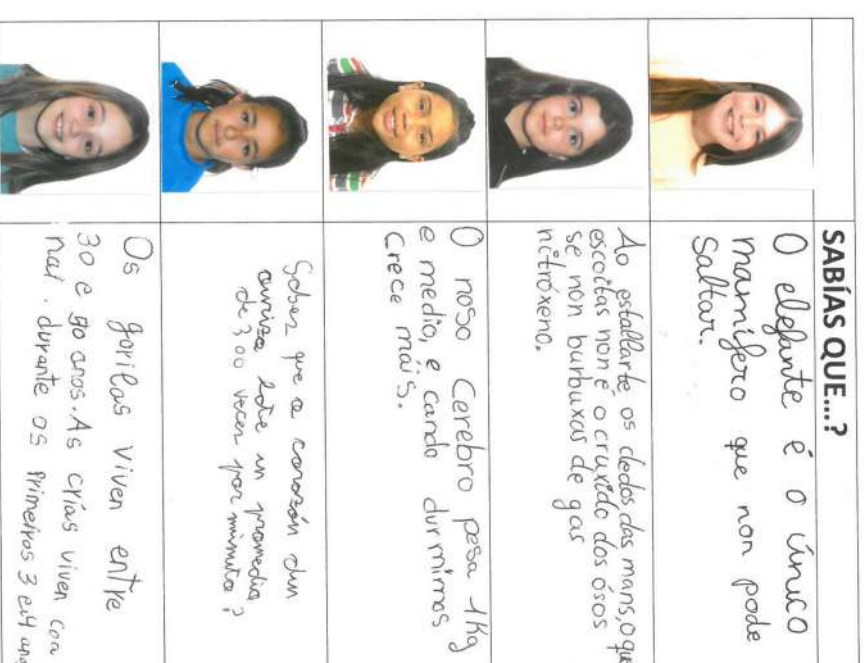 SABÍAS QUE...?
O elefante é o único
mamífero que non pode
Saltar.
Ao estallarte os dedos das mans, o que
escoitas non é o cruxido dos ósos
se non burbuxas de gas
nitróxeno.
O noso Cerebro pesa 1Kg
e medio, e cando durmimos
Crece máis.
Sabes que o corazón dun
ourizo late un promedio
de 300 veces por minuto?
Os gorilas viven entre
30 e 50 anos. As crías viven coa
nai. durante os primeiros 3 ou 4 anos